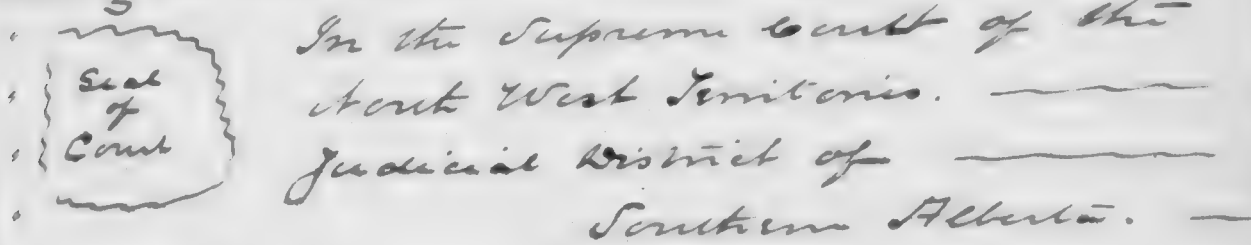 Seal
of
Court
In the Supreme Court of the
North West Territories.
Judicial District of
Southern Alberta.